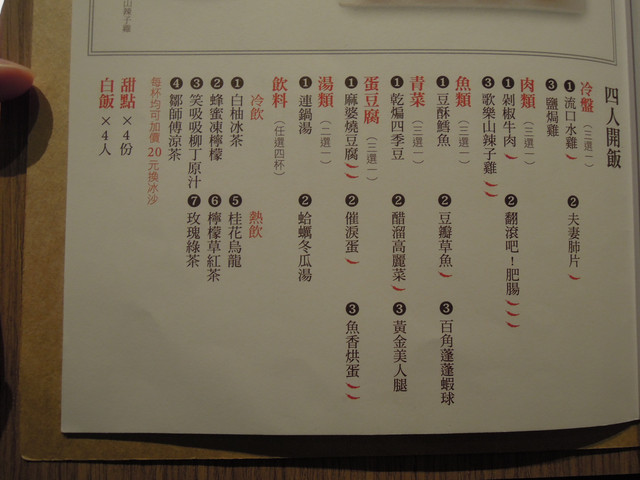 山辣子雞
四人開飯
冷盤（三選一）
❶流口水雞 ❷夫妻肺片
❸鹽焗雞
肉類（三選一）
❶剁椒牛肉 ❷翻滾吧！肥腸
❸歌樂山辣子雞
魚類（三選一）
❶豆酥鱈魚 ❷豆瓣草魚 ❸百角蓬蓬蝦球
青菜（三選一）
❶乾煸四季豆 ❷醋溜高麗菜 ❸黃金美人腿
蛋豆腐（三選一）
❶麻婆燒豆腐 ❷催淚蛋 ❸魚香烘蛋
湯類（二選一）
❶連鍋湯 ❷蛤蠣冬瓜湯
飲料（任選四杯）
冷飲 熱飲
❶白柚冰茶 ❺桂花烏龍
❷蜂蜜凍檸檬 ❻檸檬草紅茶
❸笑吸吸柳丁原汁 ❼玫瑰綠茶
❹鄒師傅涼茶
每杯均可加價20元換冰沙
甜點×4份
白飯×4人